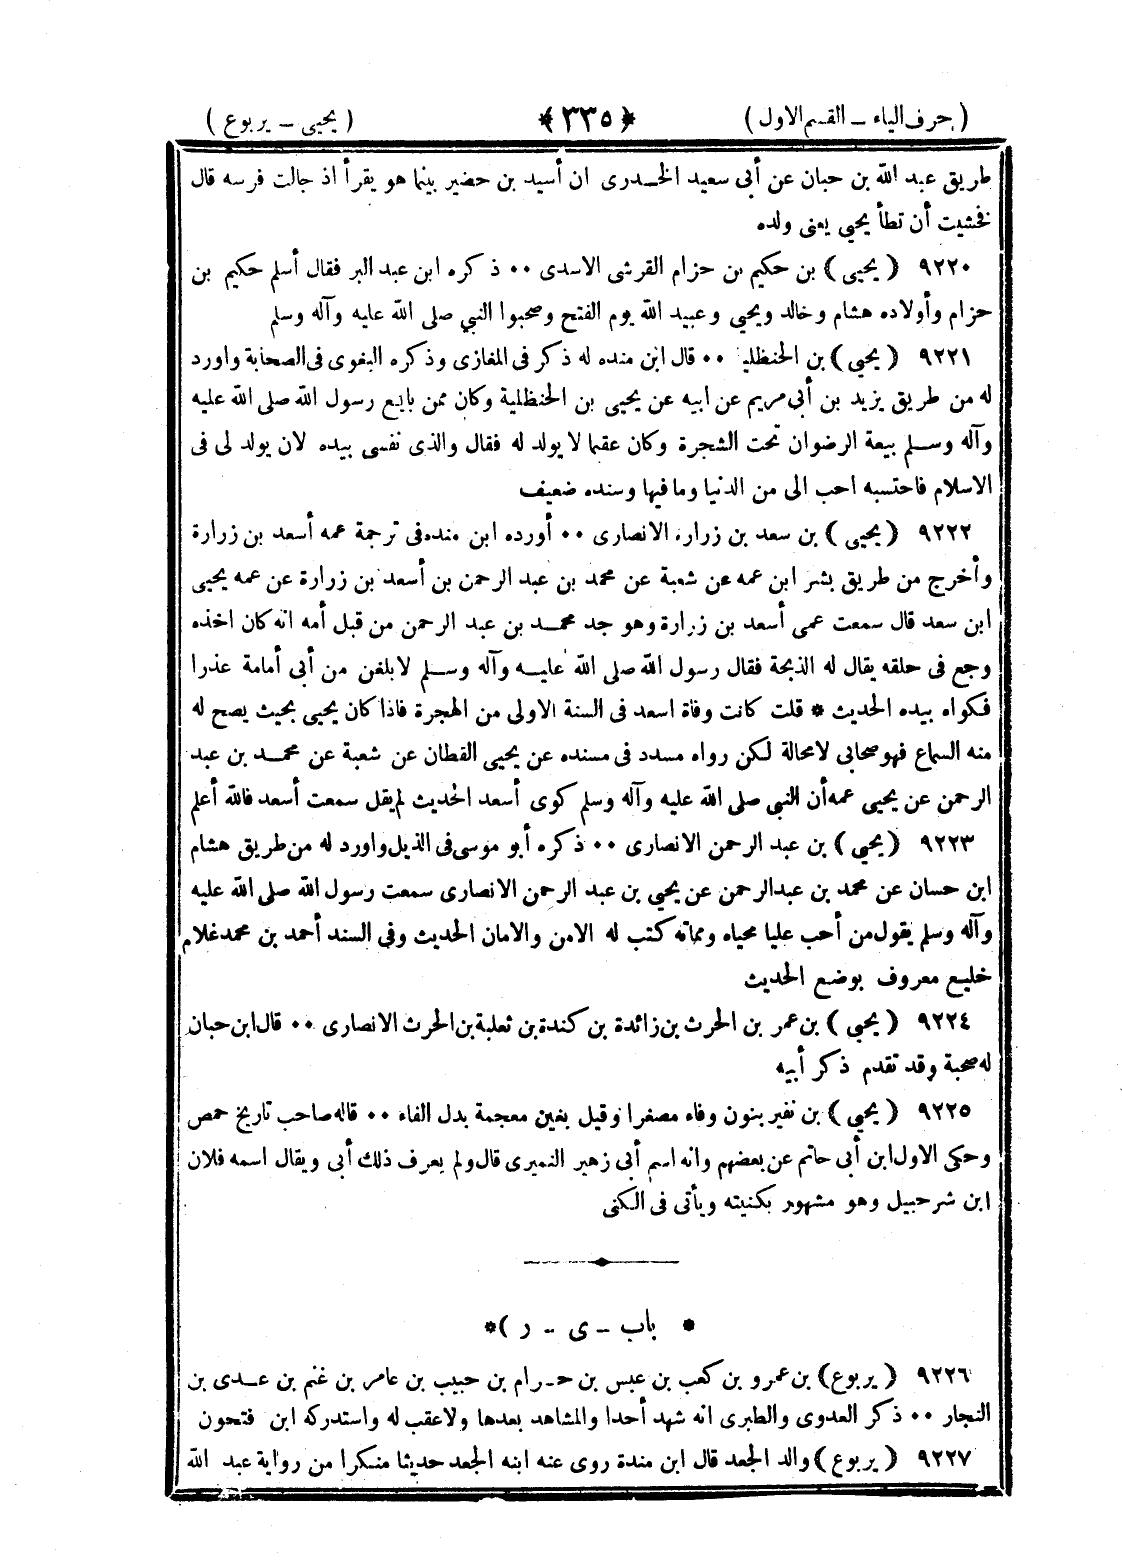 ( حرف الياء – القسم الاول ) ﴿ ٣٣٥ ﴾ ( يحيى – يربوع )
طريق عبد الله بن حبان عن أبى سعيد الخدرى ان أسيد بن حضير بينما هو يقرأ اذ جالت فرسه قال
فخشيت أن تطأ يحيى يعنى ولده
٩٢٢٠ ( يحيى ) بن حكيم بن حزام القرشى الاسدى ٠٠ ذكره ابن عبد البر فقال أسلم حكيم بن
حزام وأولاده هشام وخالد ويحيى وعبيد الله يوم الفتح وصحبوا النبي صلى الله عليه وآله وسلم
٩٢٢١ ( يحيى ) بن الحنظلية ٠٠ قال ابن منده له ذكر فى المغازى وذكره البغوى فى الصحابة واورد
له من طريق يزيد بن أبى مريم عن ابيه عن يحيى بن الحنظلية وكان ممن بايع رسول الله صلى الله عليه
وآله وسلم بيعة الرضوان تحت الشجرة وكان عقيما لا يولد له فقال والذى نفسى بيده لان يولد لى فى
الاسلام فاحتسبه احب الى من الدنيا وما فيها وسنده ضعيف
٩٢٢٢ ( يحيى ) بن سعد بن زرارة الانصارى ٠٠ أورده ابن منده فى ترجمة عمه أسعد بن زرارة
وأخرج من طريق بشر ابن عمه عن شعبة عن محمد بن عبد الرحمن بن أسعد بن زرارة عن عمه يحيى
ابن سعد قال سمعت عمى أسعد بن زرارة وهو جد محمد بن عبد الرحمن من قبل أمه انه كان اخذه
وجع فى حلقه يقال له الذبحة فقال رسول الله صلى الله عليه وآله وسلم لابلغن من أبى أمامة عذرا
فكواه بيده الحديث * قلت كانت وفاة اسعد فى السنة الاولى من الهجرة فاذا كان يحيى بحيث يصح له
منه السماع فهو صحابى لا محالة لكن رواه مسدد فى مسنده عن يحيى القطان عن شعبة عن محمد بن عبد
الرحمن عن يحيى عمه أن النبى صلى الله عليه وآله وسلم كوى أسعد الحديث لم يقل سمعت أسعد فالله أعلم
٩٢٢٣ ( يحيى ) بن عبد الرحمن الانصارى ٠٠ ذكره أبو موسى فى الذيل واورد له من طريق هشام
ابن حسان عن محمد بن عبد الرحمن عن يحيى بن عبد الرحمن الانصارى سمعت رسول الله صلى الله عليه
وآله وسلم يقول من أحب عليا محياه ومماته كتب له الامن والامان الحديث وفى السند أحمد بن محمد غلام
خليع معروف بوضع الحديث
٩٢٢٤ ( يحيى ) بن عمر بن الحرث بن زائدة بن كندة بن ثعلبة بن الحرث الانصارى ٠٠ قال ابن حبان
له صحبة وقد تقدم ذكر أبيه
٩٢٢٥ ( يحيى ) بن نفير بنون وفاء مصغرا وقيل بغين معجمة بدل الفاء ٠٠ قاله صاحب تاريخ حمص
وحكى الاول ابن أبى حاتم عن بعضهم وانه اسم أبى زهير النميرى قال ولم يعرف ذلك أبى ويقال اسمه فلان
ابن شرحبيل وهو مشهور بكنيته ويأتى فى الكنى
* باب – ى – ر )*
٩٢٢٦ ( يربوع ) بن عمرو بن كعب بن عبس بن حرام بن حبيب بن عامر بن غنم بن عدى بن
النجار ٠٠ ذكر العدوى والطبرى انه شهد أحدا والمشاهد بعدها ولا عقب له واستدركه ابن فتحون
٩٢٢٧ ( يربوع ) والد الجعد قال ابن مندة روى عنه ابنه الجعد حديثا منكرا من رواية عبد الله